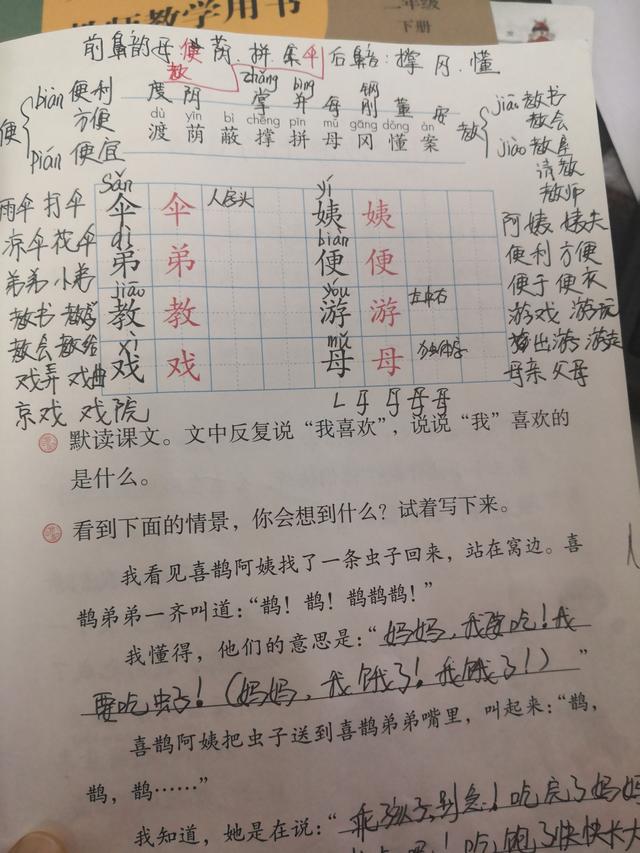 教师教学用书
二年级
下册
前鼻韵母 便 荫 拼 案 伞 后鼻音:撑 冈 懂
教
zhǎng bìng 钢
度 阴 掌 并 每 刚 董 安
dù yīn bì chēng pīn mǔ gāng dǒng àn
渡 荫 蔽 撑 拼 母 冈 懂 案
便 biàn 便利
方便
pián 便宜
教 jiāo 教书
教会
jiào 教室
请教
教师
sǎn yí
雨伞 打伞 伞 伞 人字头 姨 姨 阿姨 姨夫
凉伞 花伞
dì biàn
弟弟 小弟 弟 弟 便 便 便利 方便
便于 便衣
jiāo yóu
教书 教 教 游 游 左中右 游戏 游玩
教会 教给 游走
xì mǔ
戏弄 戏曲 戏 戏 母 母 独体字 母亲 父母
京戏 戏院
默读课文。文中反复说“我喜欢”,说说“我”喜欢的
是什么。
看到下面的情景,你会想到什么?试着写下来。
我看见喜鹊阿姨找了一条虫子回来,站在窝边。喜
鹊弟弟一齐叫道:“鹊!鹊!鹊鹊鹊!”
我懂得,他们的意思是:“妈妈,我要吃!我
要吃虫子!(妈妈,我饿了!我饿了!)”
喜鹊阿姨把虫子送到喜鹊弟弟嘴里,叫起来:“鹊,
鹊,鹊……”
我知道,她是在说:“乖孩子,别急!吃完了妈妈
吃饱了快快长大